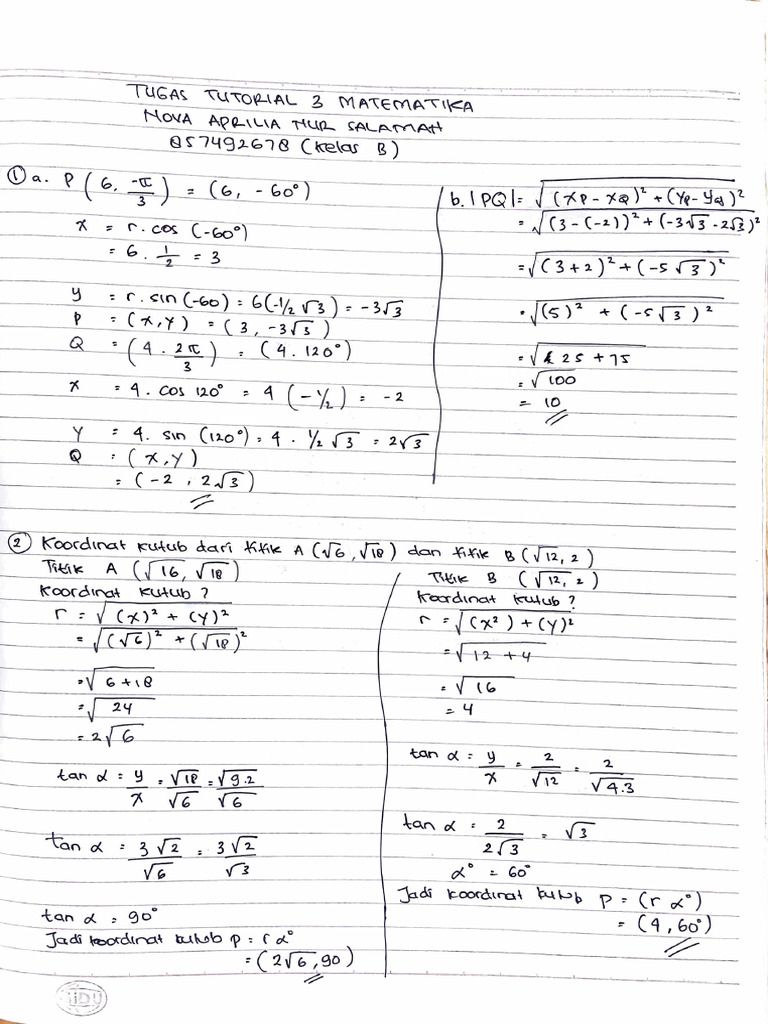 TUGAS TUTORIAL 3 MATEMATIKA
NOVA APRILIA NUR SALAMAH
857492678 (Kelas B)
① a. P (6, -π/3) = (6, -60°)
x = r. cos (-60°)
= 6. 1/2 = 3
y = r. sin (-60) = 6(-1/2 √3) = -3√3
P = (x,y) = (3, -3√3)
Q = (4. 2π/3) = (4. 120°)
x = 4. cos 120° = 4 (-1/2) = -2
Y = 4. sin (120°) = 4. 1/2 √3 = 2√3
Q = (x,y)
= (-2, 2√3)
b. |PQ| = √(xP - xQ)² + (yP - yQ)²
= √(3-(-2))² + (-3√3 - 2√3)²
= √(3+2)² + (-5√3)²
= √(5)² + (-5√3)²
= √25 + 75
= √100
= 10
② Koordinat kutub dari titik A (√6, √18) dan titik B (√12, 2)
Titik A (√16, √18)
Koordinat kutub?
r = √(x)² + (y)²
= √(√6)² + (√18)²
= √6+18
= √24
= 2√6
tan α = y/x = √18/√6 = √9.2/√6
tan α = 3√2/√6 = 3√2/√3
tan α = 90°
Jadi koordinat kutub P = r α°
= (2√6, 90)
Titik B (√12, 2)
Koordinat kutub?
r = √(x²) + (y)²
= √12 + 4
= √16
= 4
tan α = y/x = 2/√12 = 2/√4.3
tan α = 2/2√3 = √3
α° = 60°
Jadi koordinat kutub P = (r α°)
= (4, 60°)